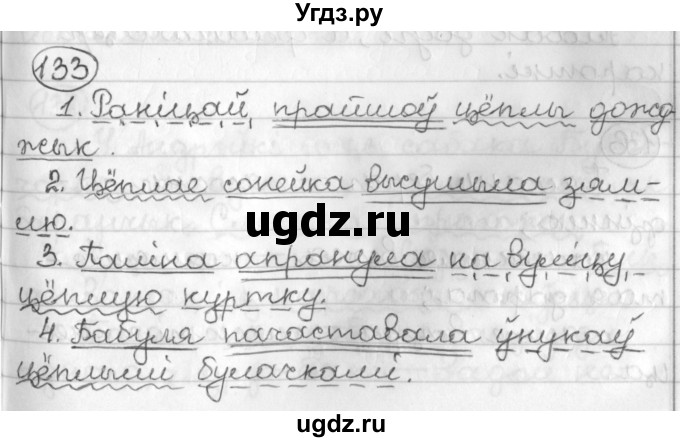 Угдз.ру
133
1. Раніцай прайшоў цёплы дожд-
жык.
2. Цёплае сонейка высушыла зям-
лю.
3. Паліна апранула на вуліцу
цёплую куртку.
4. Бабуля пачаставала ўнукаў
цёплымі булачкамі.
ugdz.ru
ugdz.ru
ugdz.ru